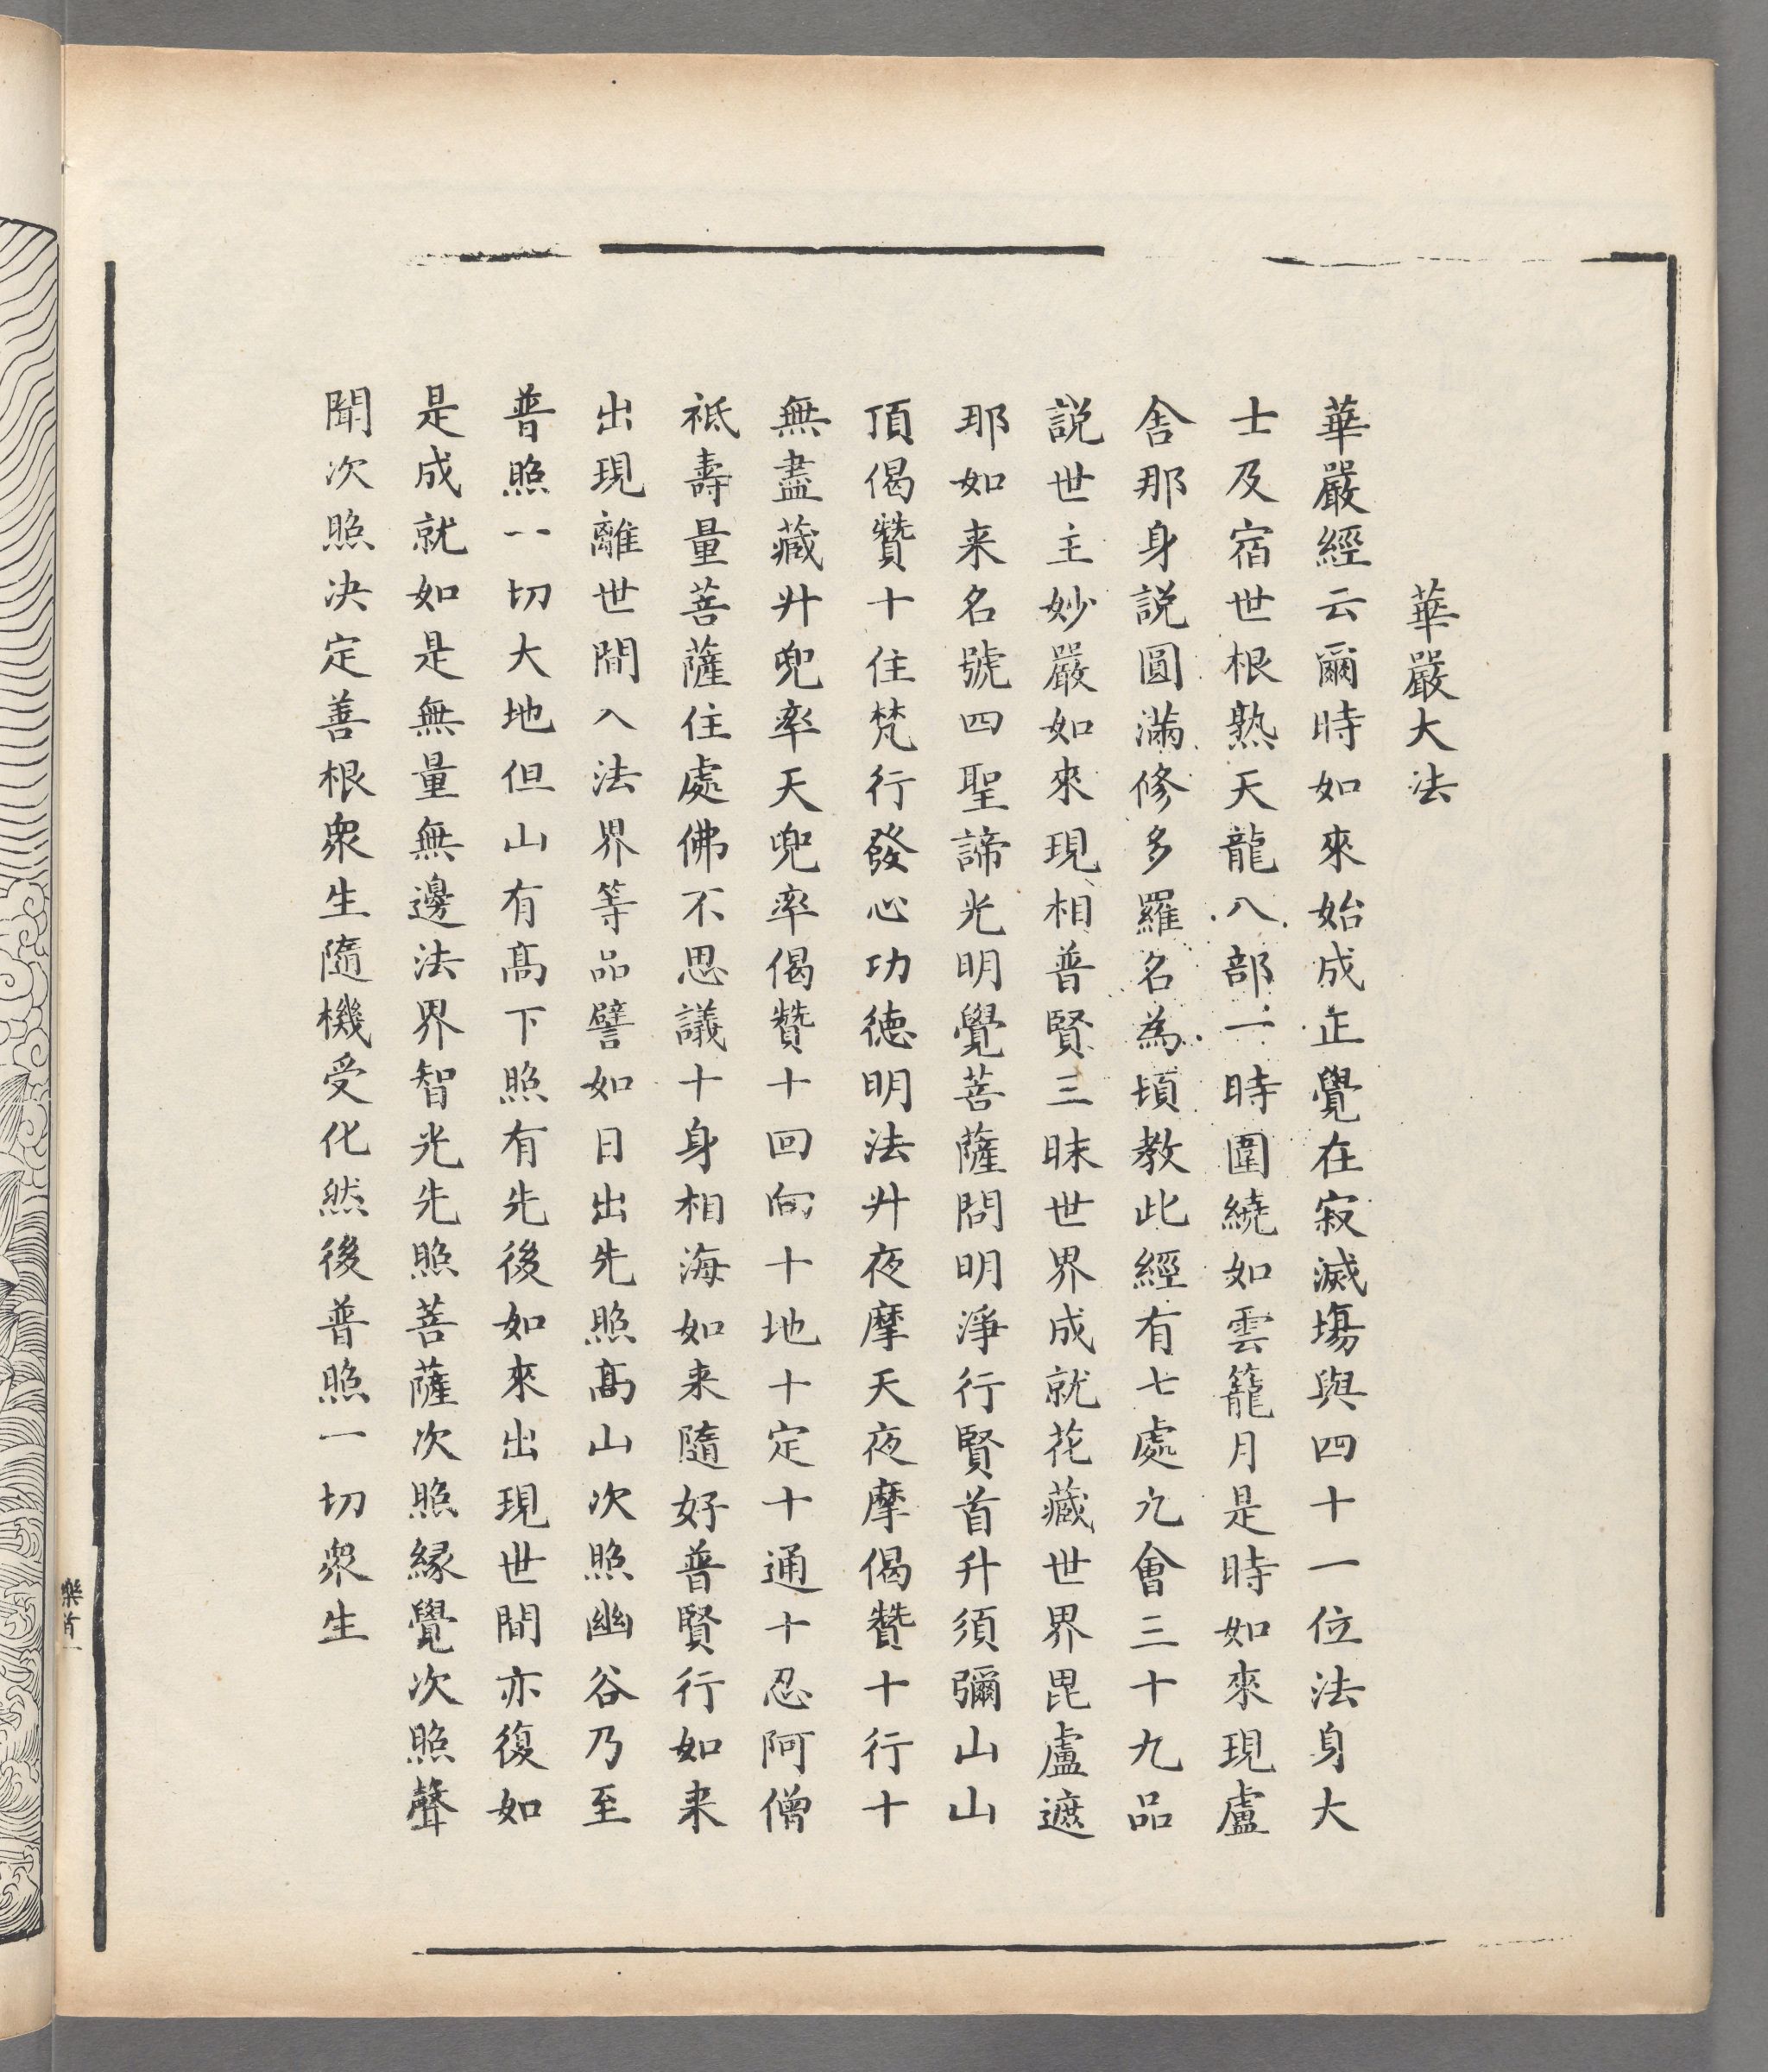 華嚴大法
華嚴經云爾時如來始成正覺在寂滅場與四十一位法身大
士及宿世根熟天龍八部一時圍繞如雲籠月是時如來現盧
舍那身說圓滿修多羅名為頓教此經有七處九會三十九品
説世主妙嚴如來現相普賢三昧世界成就花藏世界毘盧遮
耶如来名號四聖諦光明覺菩薩問明淨行賢首升須彌山山
頂偈贊十住梵行發心功德明法升夜摩天夜摩偈贊十行十
無盡藏升兜率天兜率偈贊十回向十地十定十通十忍阿僧
祇壽量菩薩住處佛不思議十身相海如来隨好普賢行如来
出現離世間入法界等品譬如日出先照高山次照幽谷乃至
普照一切大地但山有高下照有先後如來出現世間亦復如
是成就如是無量無邊法界智光先照菩薩次照緣覺次照聲
聞次照决定善根衆生隨機受化然後普照一切衆生